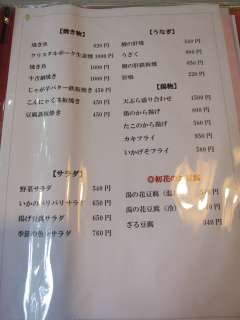 【焼き物】
焼き魚 820円
クリスタルポーク生姜焼 1000円
焼き鳥 1000円
牛舌網焼き 1000円
じゃが芋バター鉄板焼き 450円
こんにゃく鉄板焼き 450円
豆腐鉄板焼き 450円
【サラダ】
野菜サラダ 540円
いかのパリパリサラダ 650円
揚げ豆腐サラダ 650円
季節の魚のサラダ 760円
【うなぎ】
鰻の肝焼 540円
うざく 980円
鰻の肝鉄板焼 980円
肝吸 220円
【揚物】
天ぷら盛り合わせ 1500円
鶏のから揚げ 860円
たこのから揚げ 860円
カキフライ 860円
いかげそフライ 860円
◎初花のお豆腐
湯の花豆腐
湯の花豆腐（冷）
ざる豆腐 540円